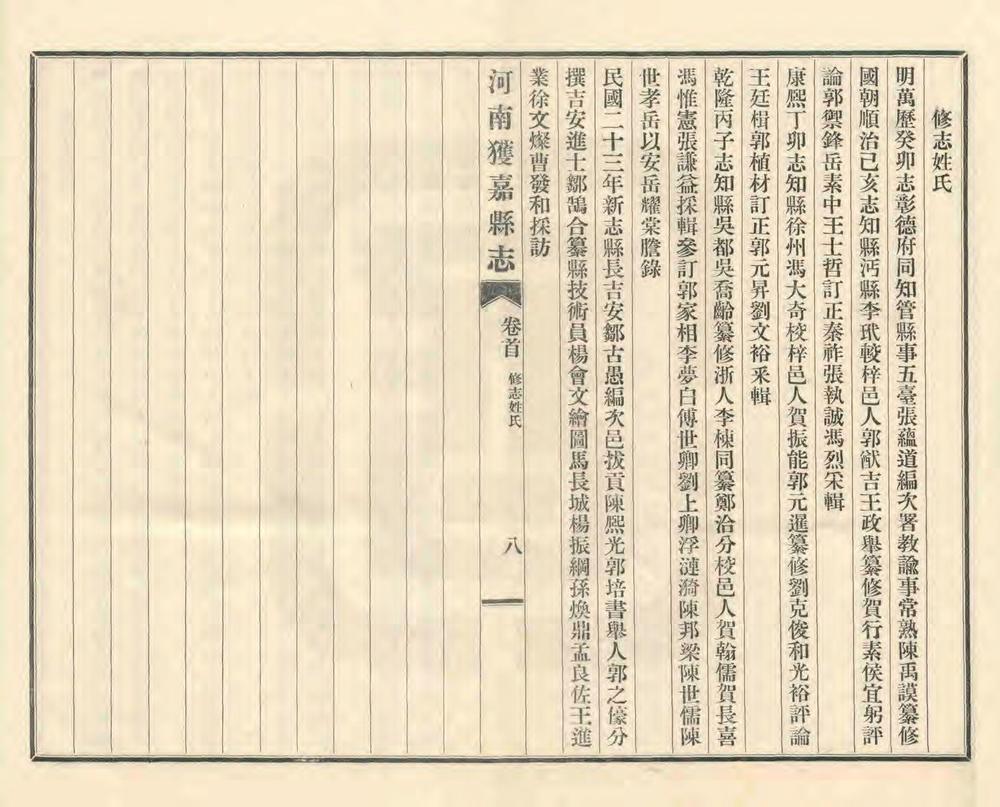 修志姓氏
明萬歷癸卯志彰德府同知管縣事五臺張蘊道編次署教諭事常熟陳禹謨纂修
國朝順治己亥志知縣沔縣李玳較梓邑人郭猷吉王政舉纂修賀行素侯宜躬評
論郭禦鋒岳素中王士哲訂正秦祚張執誠馮烈采輯
康熙丁卯志知縣徐州馮大奇校梓邑人賀振能郭元暹纂修劉克俊和光裕評論
王廷楫郭植材訂正郭元昇劉文裕采輯
乾隆丙子志知縣吳都吳喬齡纂修浙人李棟同纂鄭洽分校邑人賀翰儒賀長喜
馮惟憲張謙益採輯參訂郭家相李夢白傅世卿劉上卿浮漣漪陳邦梁陳世儒陳
世孝岳以安岳耀棠謄錄
民國二十三年新志縣長吉安鄒古愚編次邑拔貢陳熙光郭培書舉人郭之濠分
撰吉安進士鄒鵠合纂縣技術員楊會文繪圖馬長城楊振綱孫煥鼎孟良佐王進
業徐文燦曹發和採訪
河南獲嘉縣志 卷首 修志姓氏 八